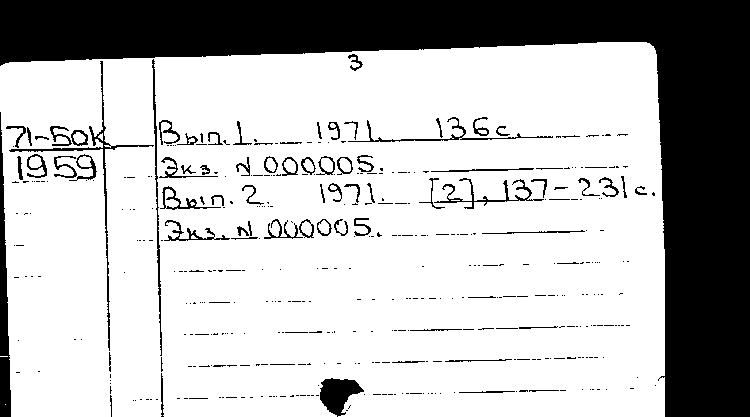 3
71-50К
1959
Вып. 1. 1971. 136 с.
Экз. N 000005.
Вып. 2. 1971. [2], 137-231 с.
Экз. N 000005.